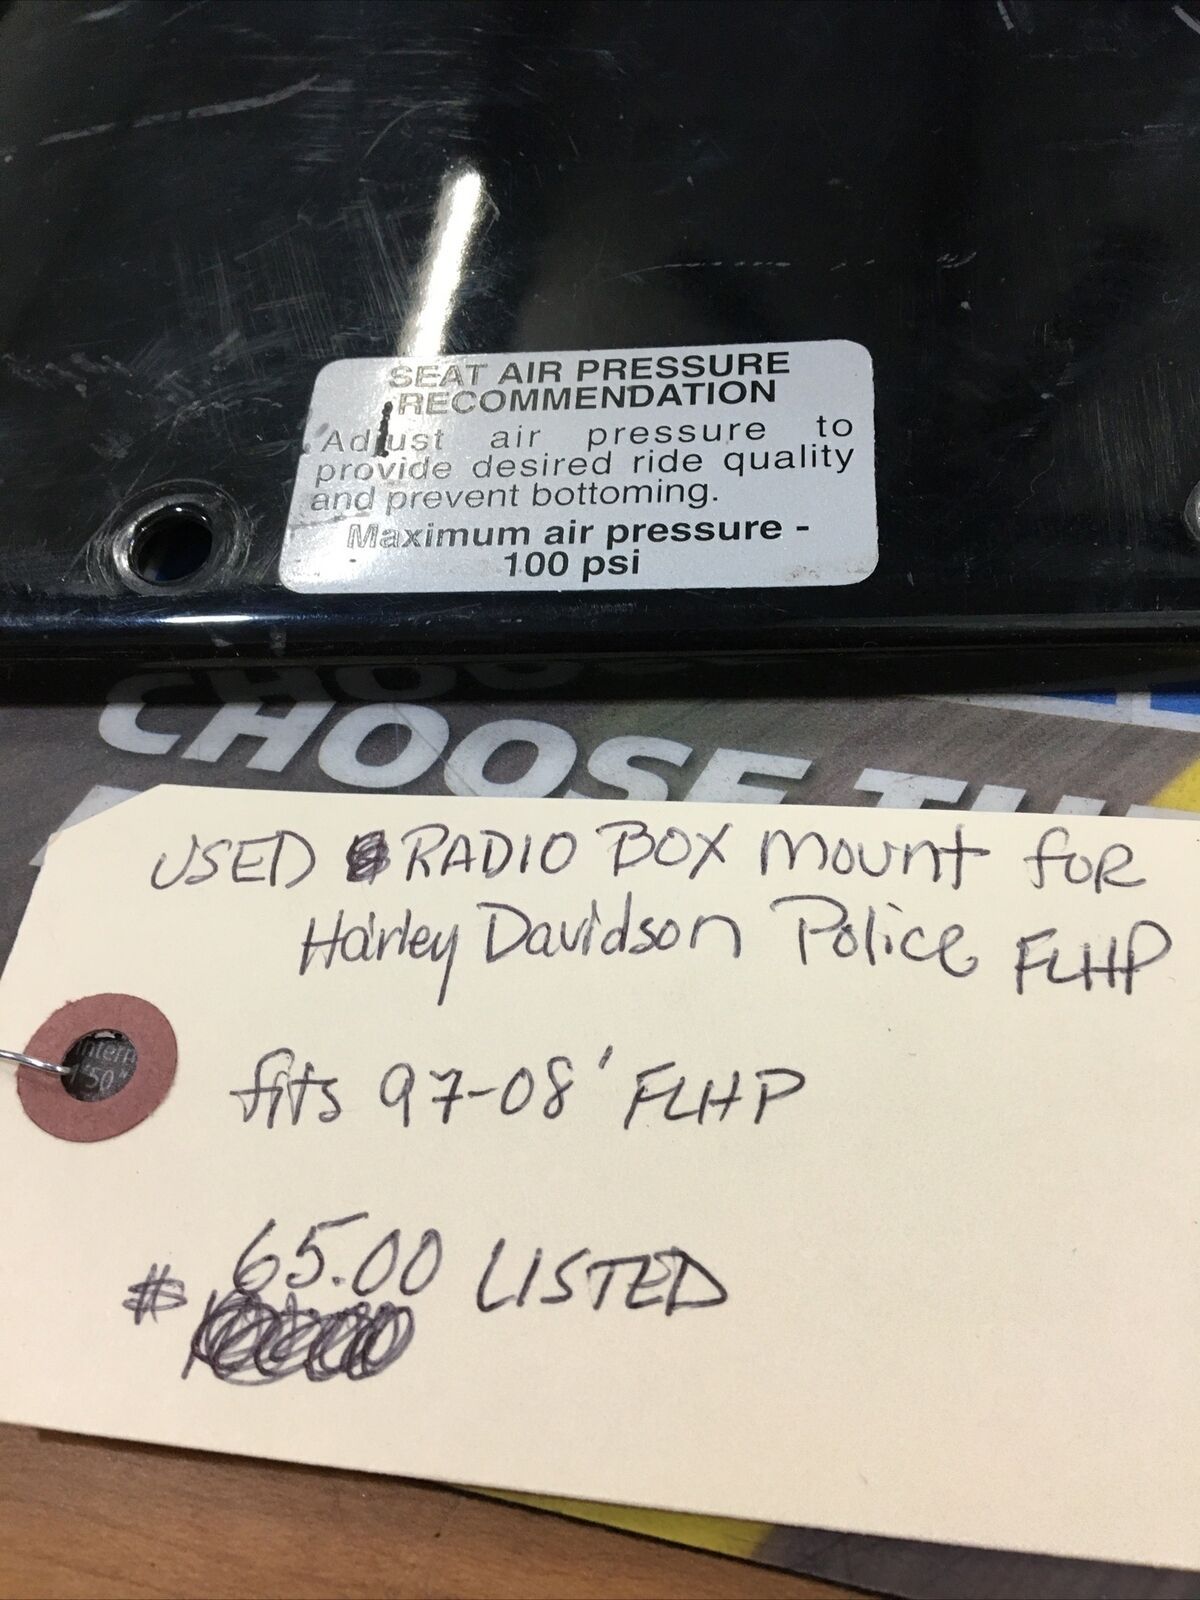 SEAT AIR PRESSURE
RECOMMENDATION
Adjust air pressure to
provide desired ride quality
and prevent bottoming.
Maximum air pressure -
100 psi
CHOOSE
USED RADIO BOX Mount for
Harley Davidson Police FLHP
Intern
'50"
fits 97-08' FLHP
65.00 LISTED
#